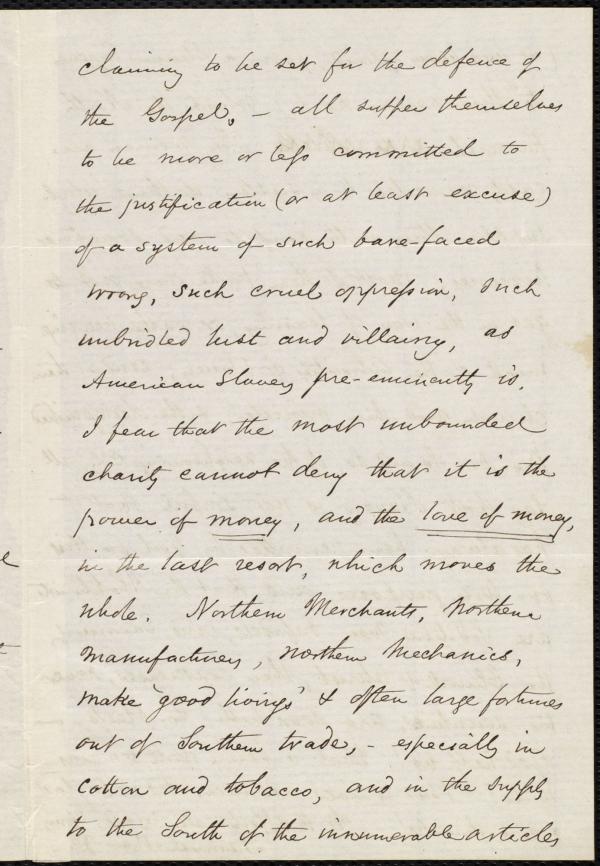 claiming to be set for the defence of
the Gospel, – all suffer themselves
to be more or less committed to
the justification (or at least excuse)
of a system of such bare-faced
wrong, such cruel oppression, such
unbridled lust and villainy, as
American Slavery pre-eminently is.
I fear that the most unbounded
charity cannot deny that it is the
power of money, and the love of money,
in the last resort, which moves the
whole. Northern Merchants, northern
manufacturers, northern mechanics,
make 'good livings' & often large fortunes
out of Southern trade, – especially in
cotton and tobacco, and in the supply
to the South of the innumerable articles